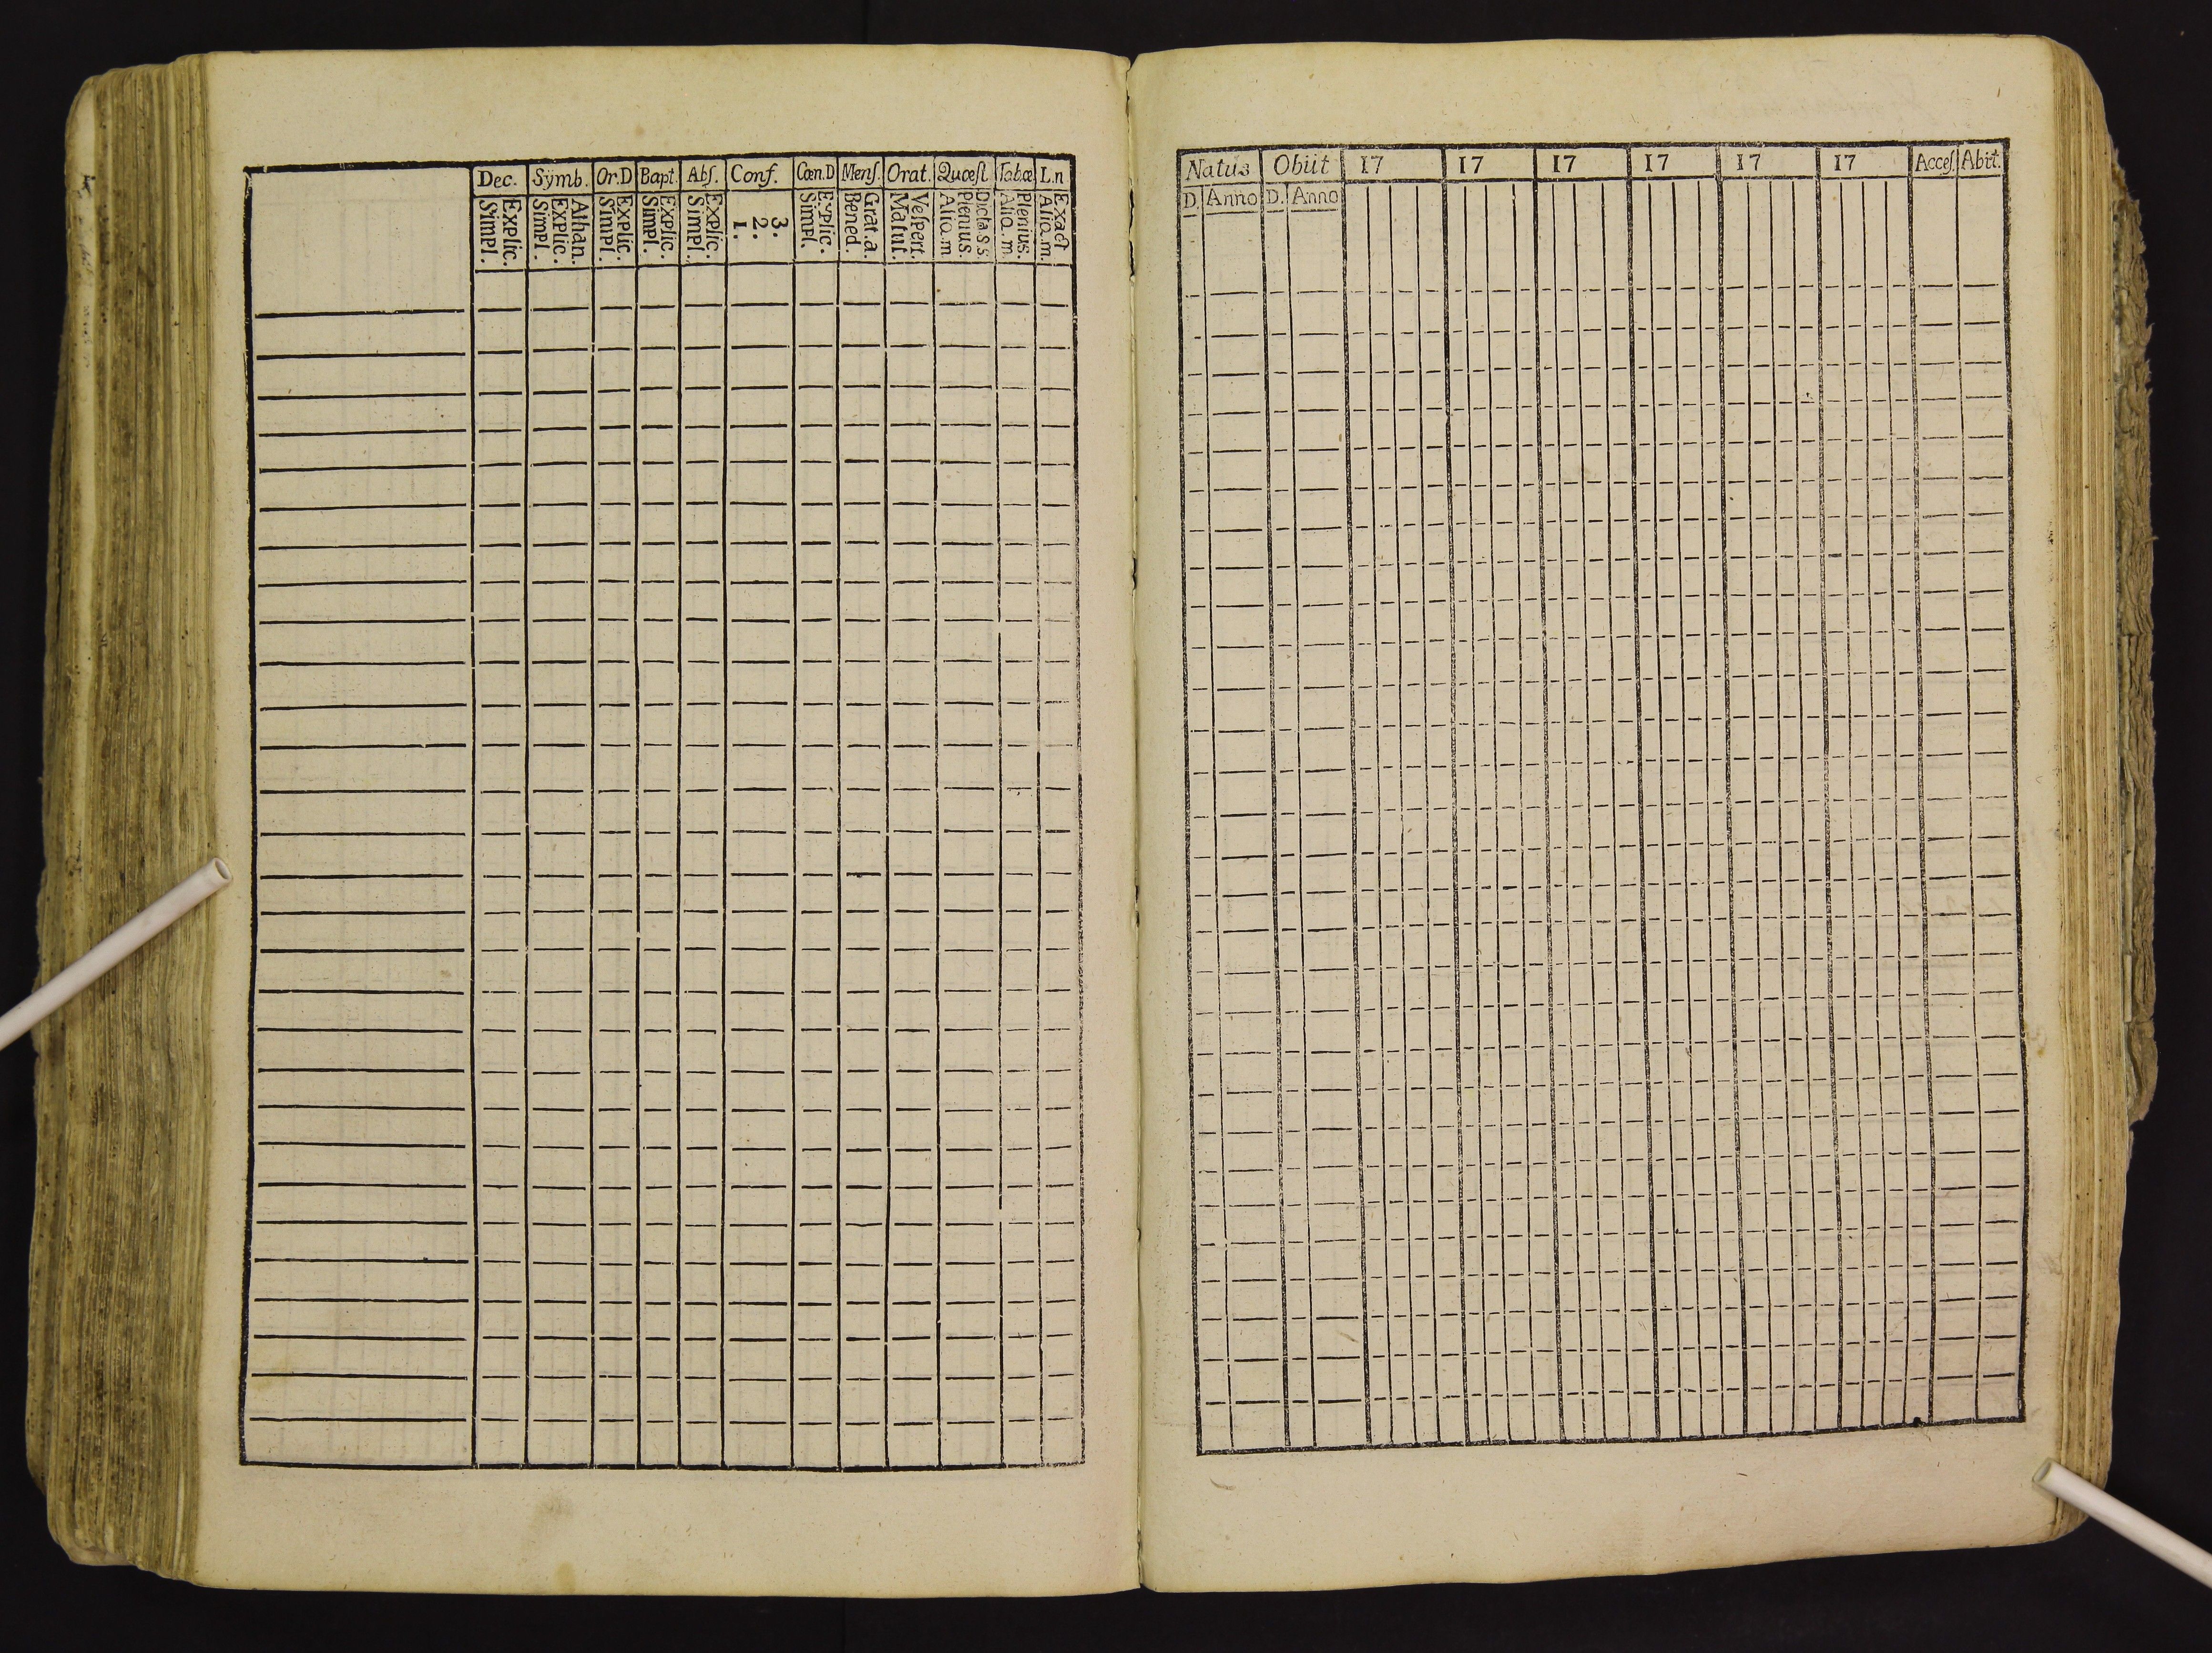 Dec. Sÿmb. Or.D Bapt. Abſ. Conf. Cœn.D Menſ. Orat. Quœſt. Tabœ L.n
Simpl. Explic. Simpl. Explic. Athan. Simpl. Explic. Simpl. Explic. Simpl. Explic. 1. 2. 3. Simpl. Explic. Bened. Grat.a. Matut. Veſpert. Aliq.m Plenius. Dicta S.S. Aliq.m Plenius. Aliq.m. Exact
Natus Obiit 17 17 17 17 17 17 Acceſ. Abit.
D. Anno D. Anno